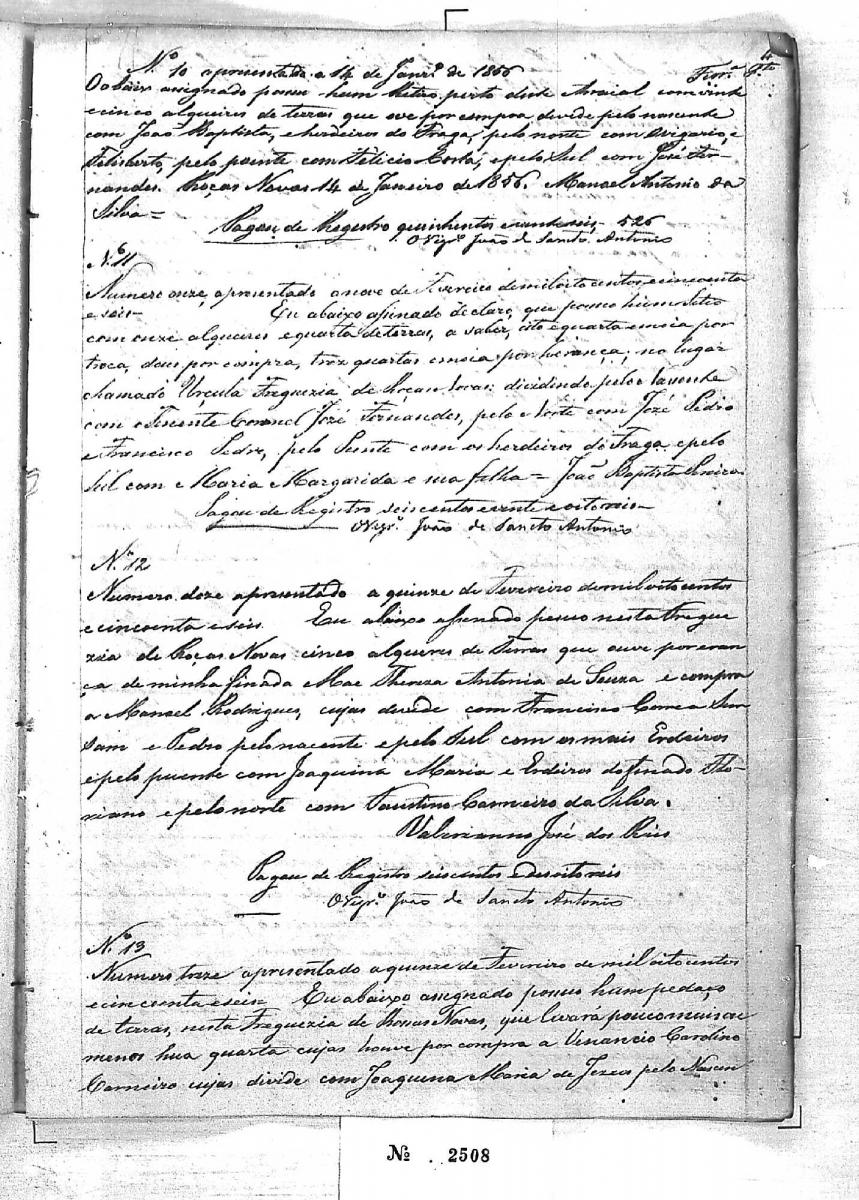 Nº 10 apresentado a 14 de Janrº de 1856
O abaixo assignado possue hum Retiro perto deste Arraial com vinte
e cinco alqueires de terras que ove por compra devede pelo nascente
com João Baptista, e herdeiros do Fraga, pelo norte com Belgario, e
Felisberto, pelo poente com Felicio Costa, e pelo Sul com José Fer-
nandes. Roças Novas 14 de Janeiro de 1856. Manoel Antonio da
Silva=
Pagou de Registro quinhentos e vinte seis 526
O Vigrº João de Sancto Antonio
Nº 11
Numero onze, apresentado a nove de Fevereiro de mil oito centos e cincoenta
e seis Eu abaixo assinado declaro, que possuo hum Sitio
com onze alqueres e quarta de terras, a saber, oito e quarta e meia por
troca, dous por compra, trez quartas e meia por herança; no lugar
chamado Urcula Freguezia de Roças Novas: dividindo pelo Nasente
com o Tenente Coronel José Fernandes, pelo Norte com José Pedro
e Francisco Pedro, pelo Puente com os herdeiros do Fraga, e pelo
Sul com Maria Margarida e sua filha= João Baptista Pereira
Pagou de Registro seiscentos e vente e oito reis
O Vigrº João de Sancto Antonio
Nº 12
Numero doze apresentado a quinze de Fevereiro de mil oito centos
e cincoenta e seis Eu abaixo assenado posuo nesta Fregue
zia de Roças Novas cinco alqueres de Terras que ouve por eran
ça de minha finada Mae Thereza Antonia de Souza e compra
a Manoel Rodrigues, cujas devede com Francisco Correa
e Pedro pelo nacente e pelo Sul com os mais Erdeiros
e pelo puente com Joaquina Maria e Erdeiros do finado Flo-
riano e pelo norte com Faustino Carneiro da Silva.
Valerianno José dos Reis
Pagou de Registro seiscentos e desoito reis
O Vigrº João de Sancto Antonio
Nº 13
Numero treze apresentado a quinze de Fevereiro de mil oito centos
e cincoenta e seis Eu abaixo assegnado possuo hum pedaço
de terras, nesta Freguezia de Rossas Novas, que levará pouco mais ou
menos hua quarta cujas houve por compra a Venancio Carolino
Carneiro cujas divide com Joaquina Maria de Jezus pelo Nascen
Nº 2508